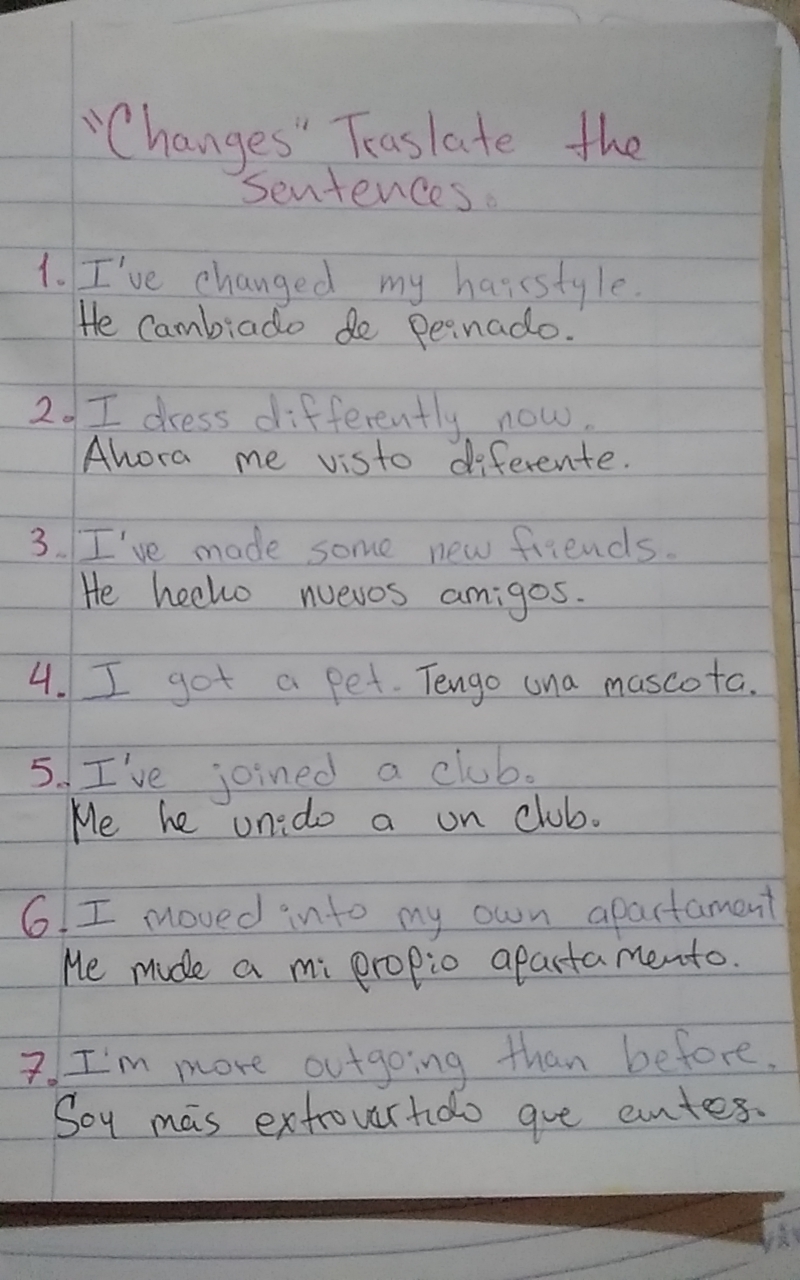 "Changes" Traslate the
Sentences.
1. I've changed my hairstyle.
He cambiado de peinado.
2. I dress differently now.
Ahora me visto diferente.
3. I've made some new friends.
He hecho nuevos amigos.
4. I got a pet. Tengo una mascota.
5. I've joined a club.
Me he unido a un club.
6. I moved into my own apartament
Me mude a mi propio apartamento.
7. I'm more outgoing than before.
Soy más extrovertido que antes.